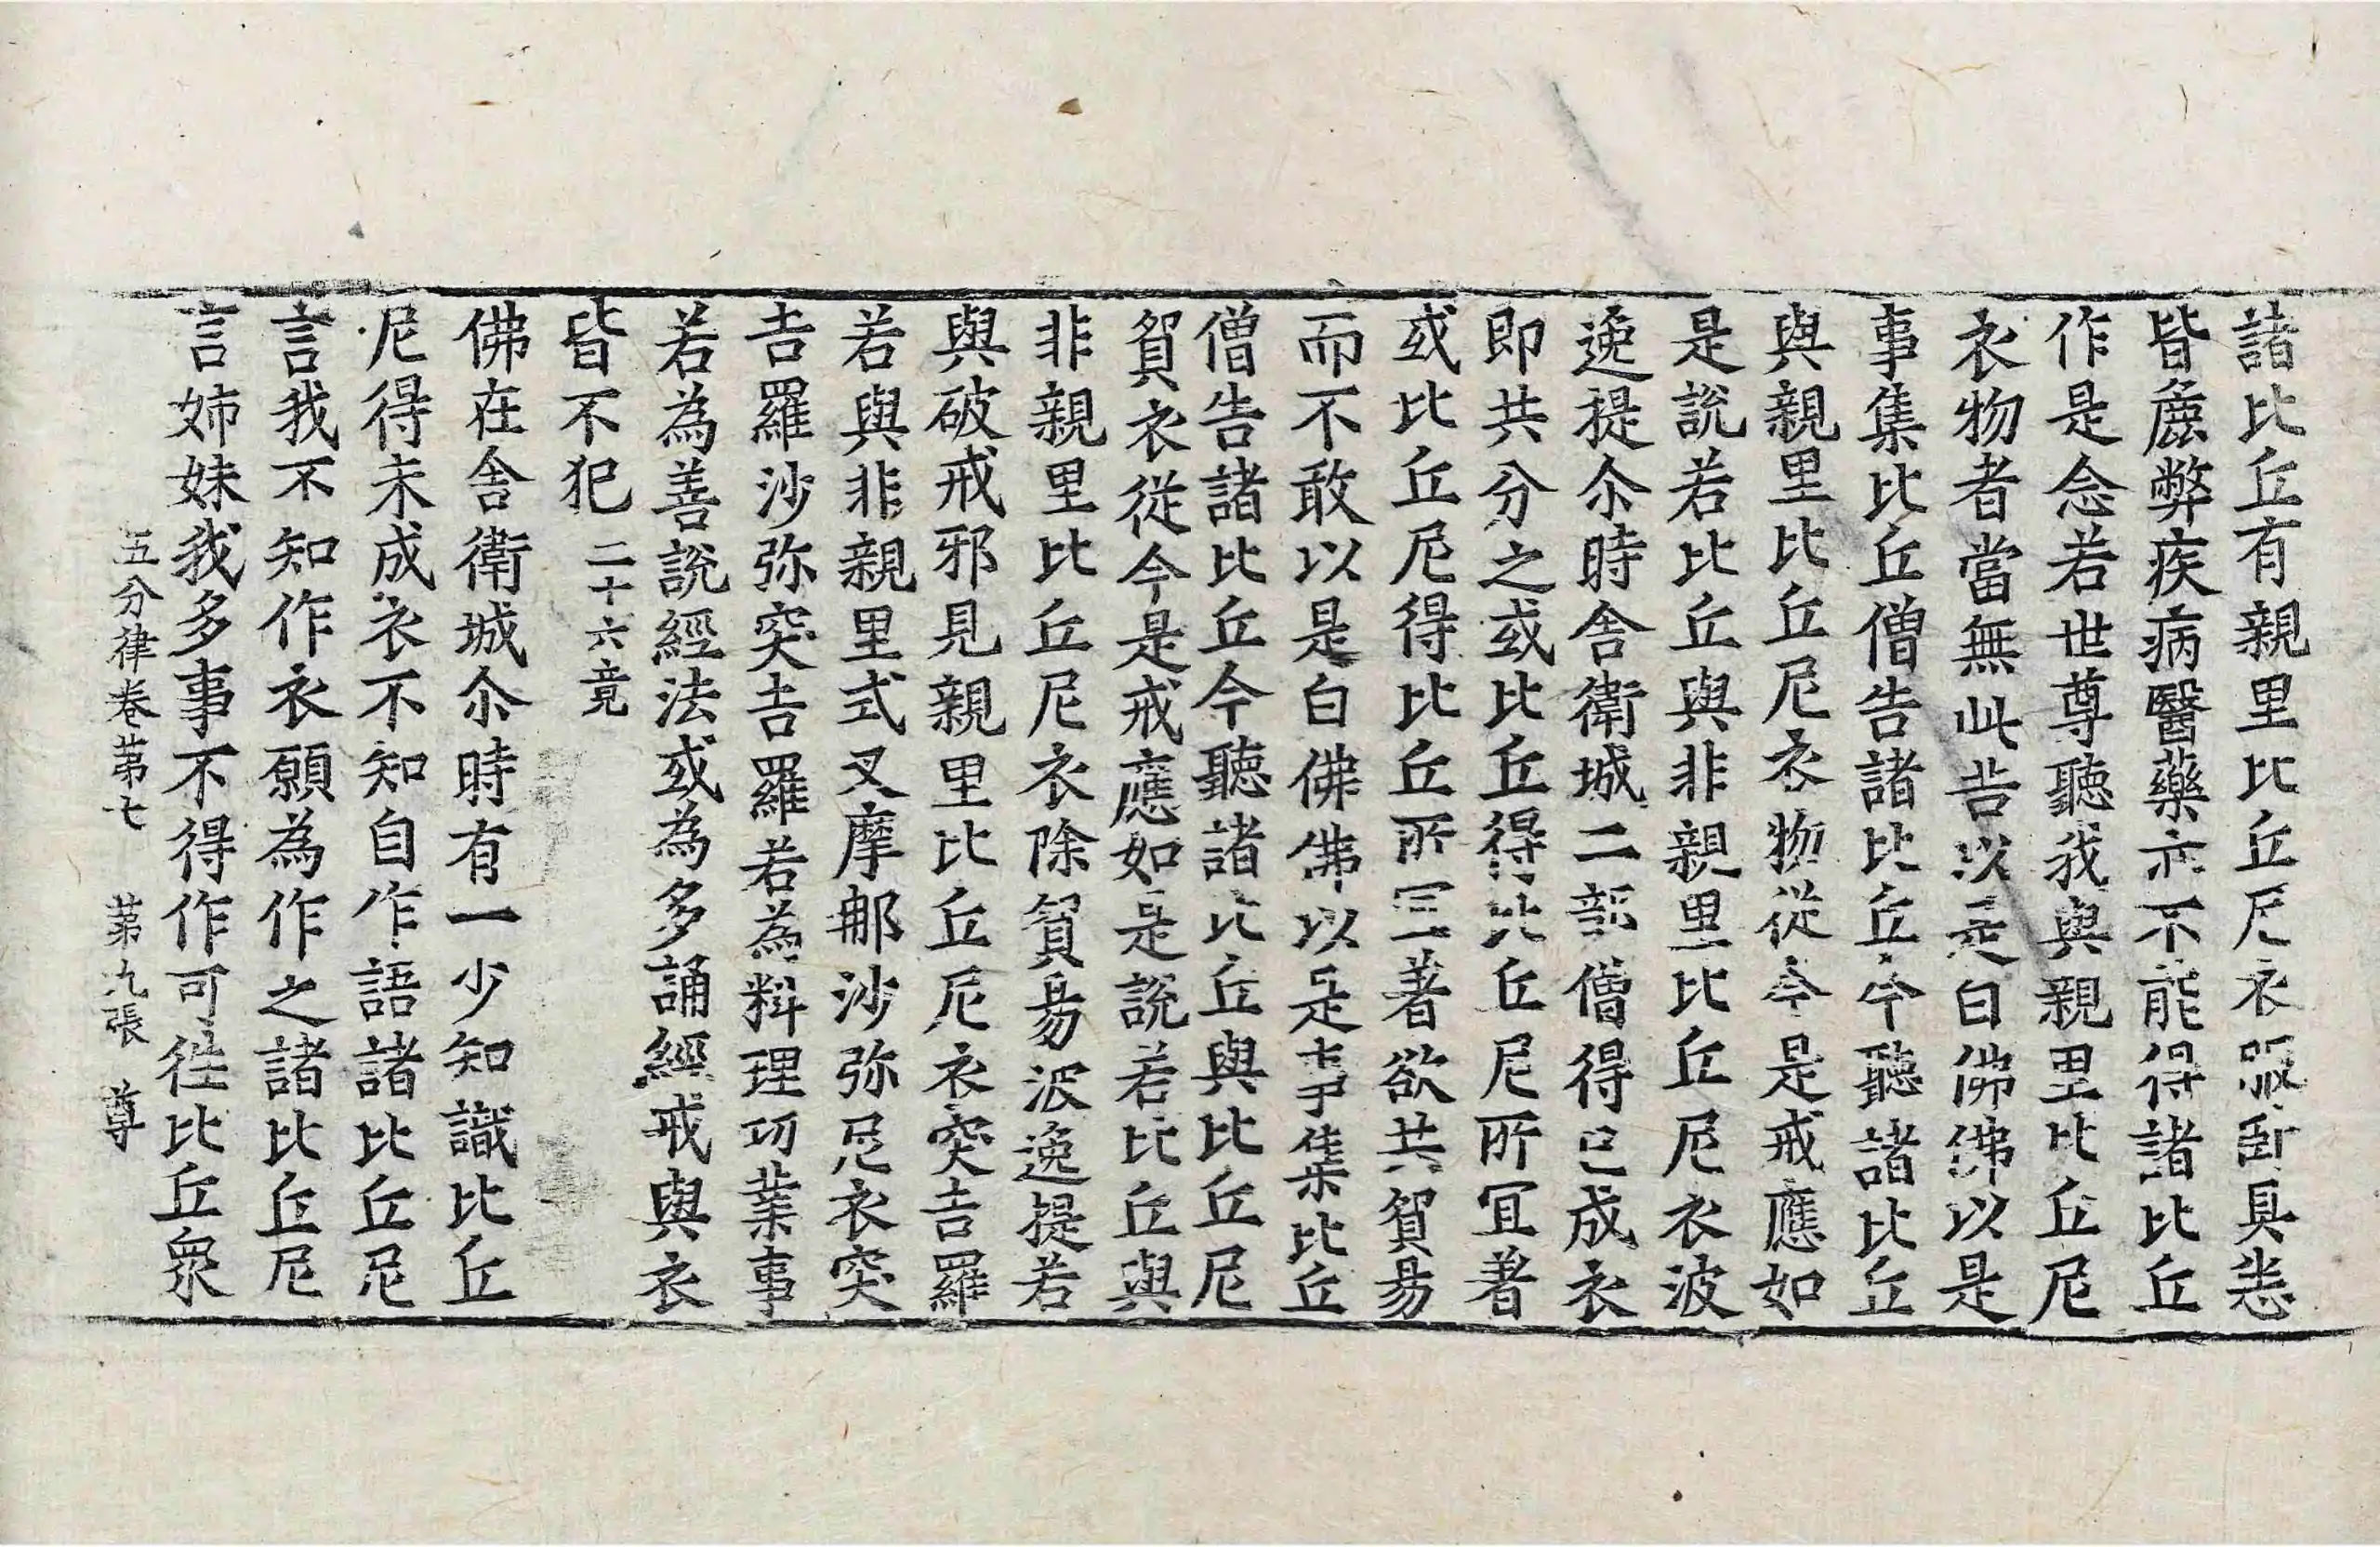 諸比丘有親里比丘尼衣服卧具悉
皆麁弊疾病醫藥亦不能得諸比丘
作是念若世尊聽我與親里比丘尼
衣物者當無此苦以是白佛佛以是
事集比丘僧告諸比丘今聽諸比丘
與親里比丘尼衣物從今是戒應如
是說若比丘與非親里比丘尼衣波
逸提尒時舎衛城二部僧得已成衣
即共分之或比丘得比丘尼所宜著
或比丘尼得比丘所宜著欲共貿易
而不敢以是白佛佛以是事集比丘
僧告諸比丘今聽諸比丘與比丘尼
貿衣從今是戒應如是說若比丘與
非親里比丘尼衣除貿易波逸提若
與破戒邪見親里比丘尼衣突吉羅
若與非親里式叉摩那沙弥尼衣突
吉羅沙弥突吉羅若為料理功業事
若為善說經法或為多誦經戒與衣
皆不犯 二十六竟
佛在舎衛城尒時有一少知識比丘
尼得未成衣不知自作語諸比丘尼
言我不知作衣願為作之諸比丘尼
言姊妹我多事不得作可往比丘衆
五分律卷第七 第九張 尊